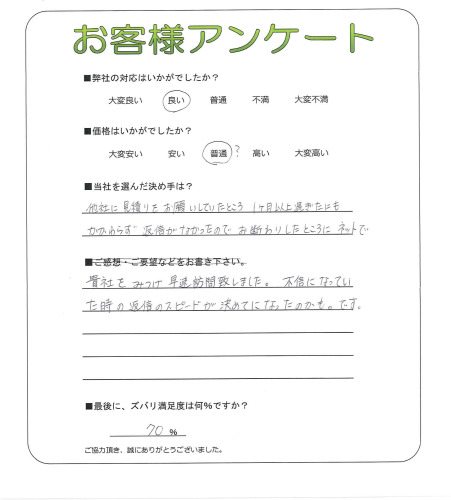 お客様アンケート
■弊社の対応はいかがでしたか?
大変良い 良い 普通 不満 大変不満
■価格はいかがでしたか?
大変安い 安い 普通? 高い 大変高い
■当社を選んだ決め手は?
他社に見積りをお願いしていたところ 1ヶ月以上過ぎたにも
かかわらず 返信がなかったので お断わりしたところに ネットで
■ご感想・ご要望などをお書き下さい。
貴社をみつけ 早速 訪問致しました。 不信になってい
た時の返信のスピードが決めてになったのかも。です。
■最後に、ズバリ満足度は何%ですか?
70 %
ご協力頂き、誠にありがとうございました。